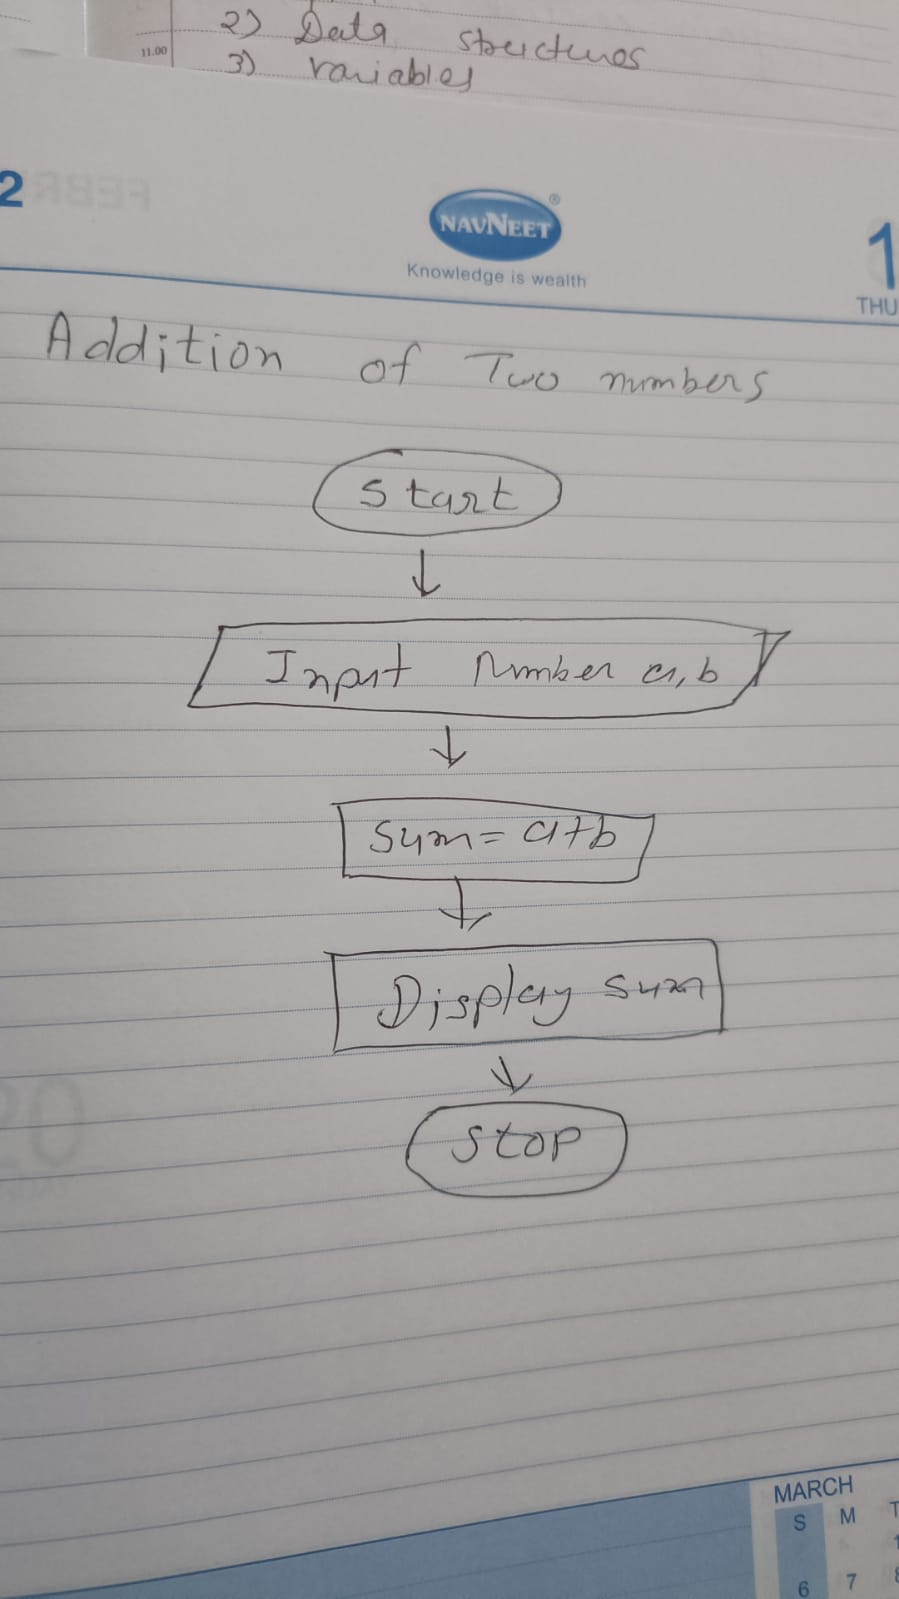 2) Data structures
11.00
3) variables
2
NAVNEET®
Knowledge is wealth
1
THU
Addition of Two numbers
Start
Input Number a, b
Sum = a+b
Display sum
Stop
20
MARCH
S M T
6 7 8